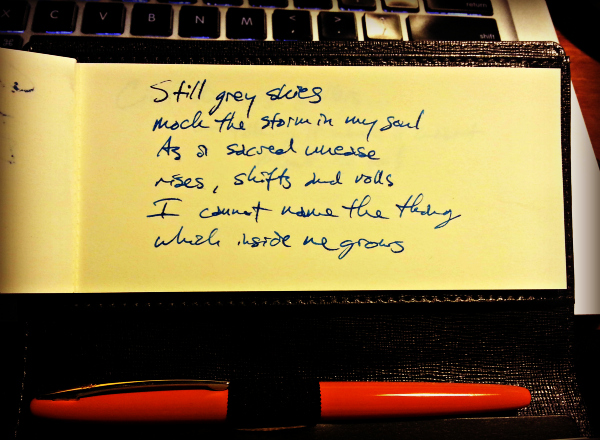 Z X C V B N M < > ?
return
shift
Still grey skies
mock the storm in my soul
As a sacred unease
rises, shifts and rolls
I cannot name the thing
which inside me grows